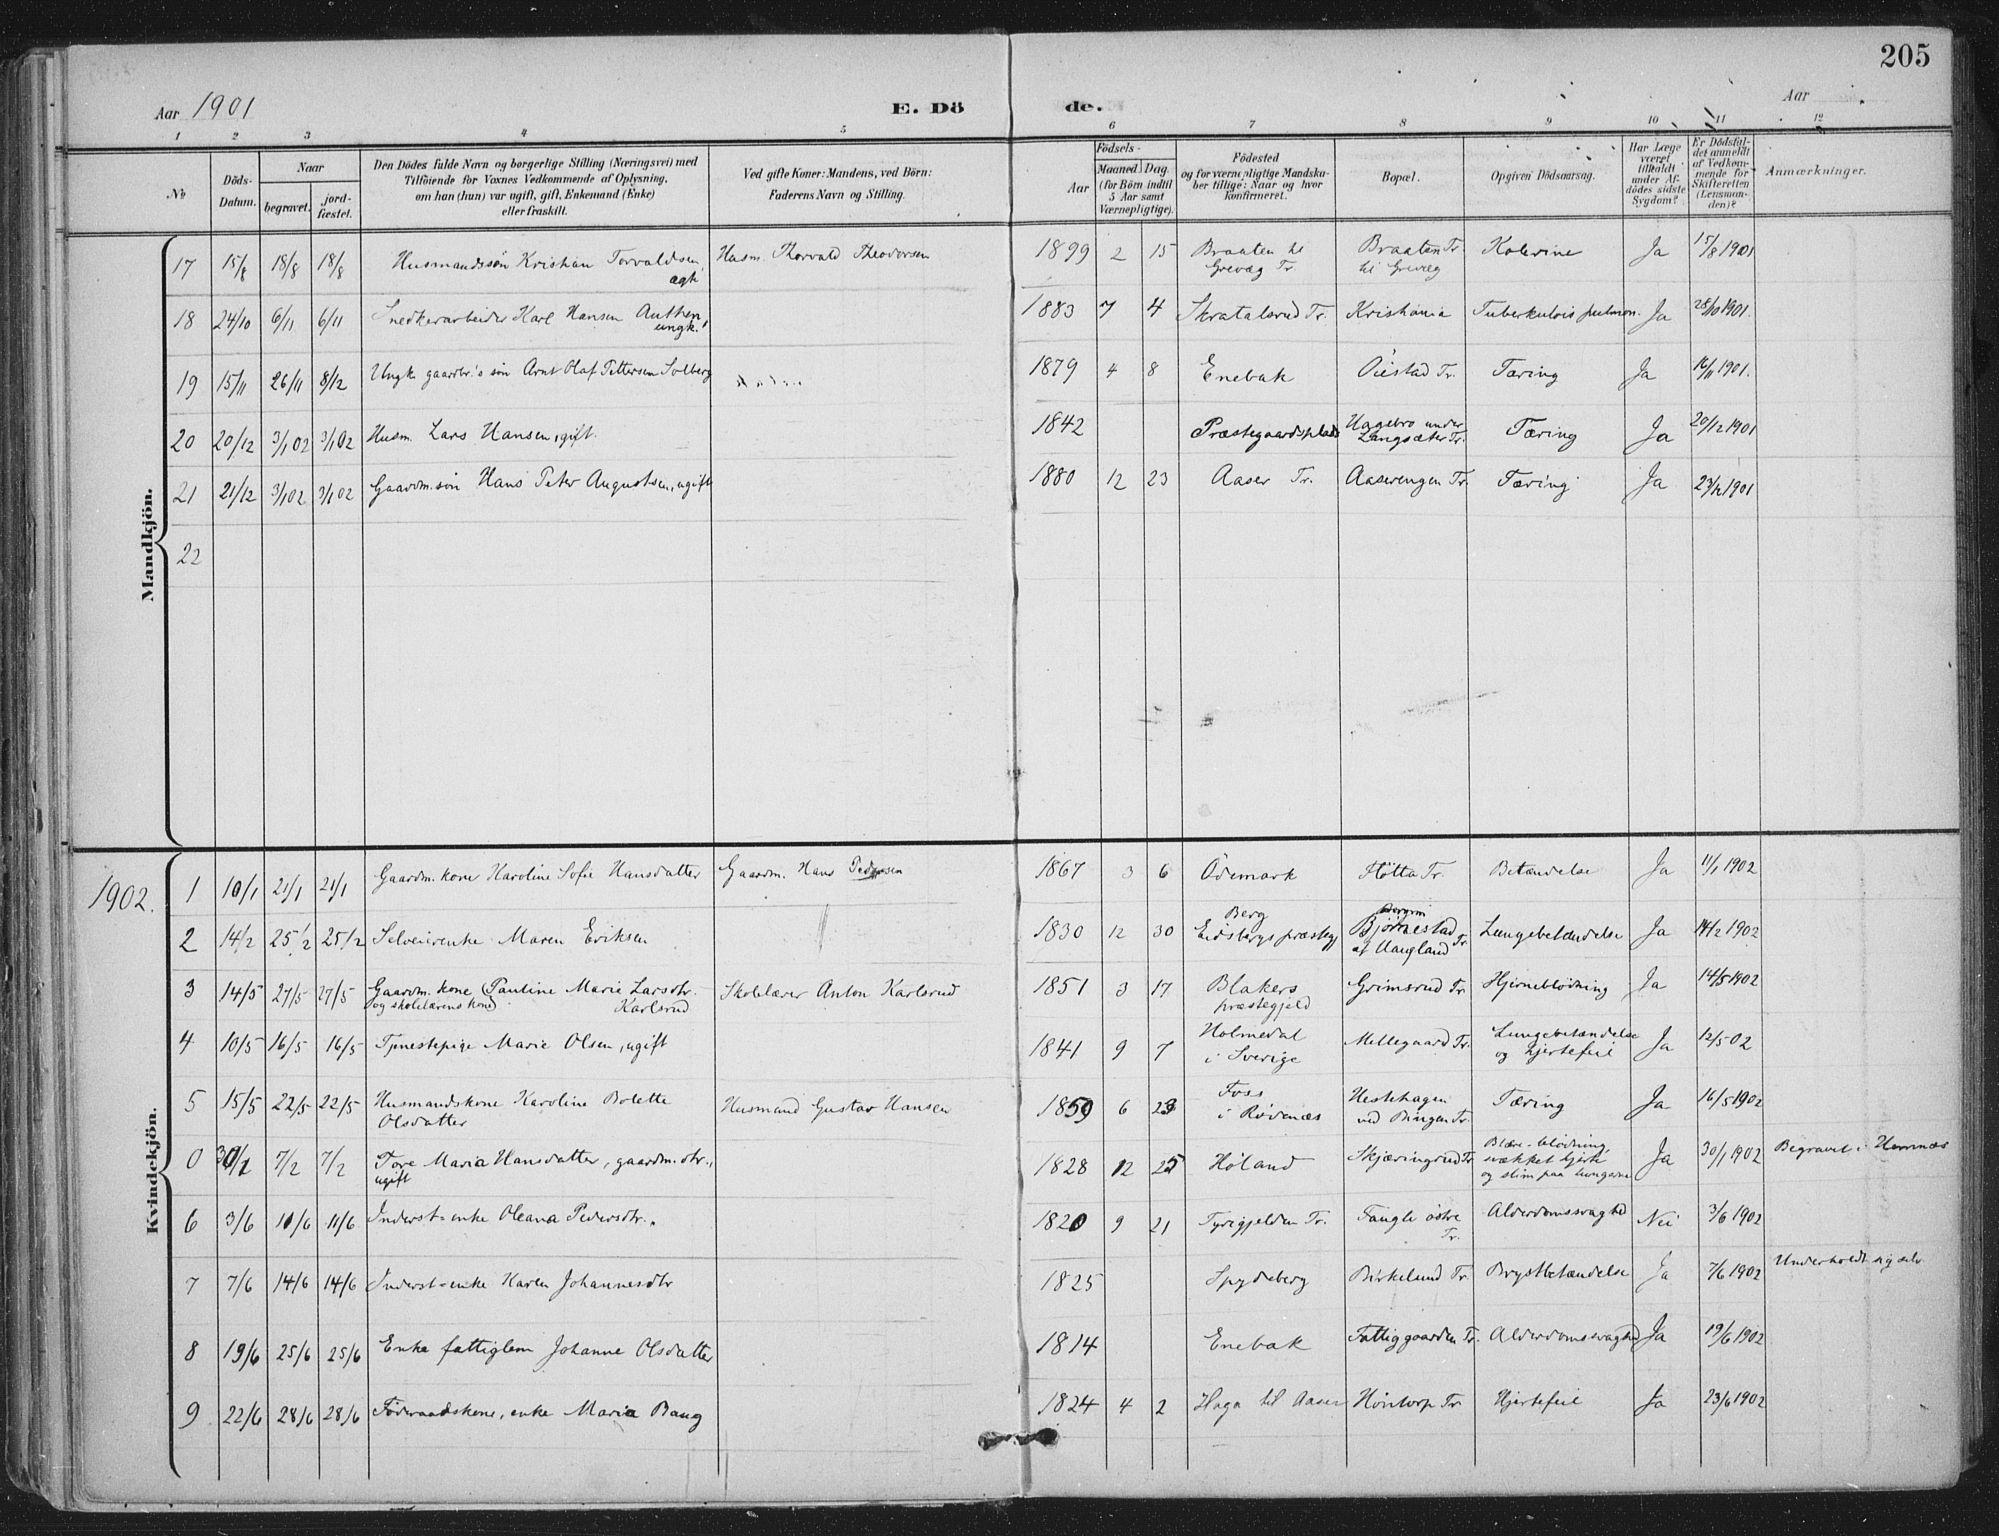 205
Aar 1901
E. Dö
de.
Aar
1 2 3 4 5 6 7 8 9 10 11 12
No
Döds-Datum.
Naar
begravet.
jord-fæstet.
Den Dödes fulde Navn og borgerlige Stilling (Næringsvei) med
Tilföiende for Voxnes Vedkommende af Oplysning,
om han (hun) var ugift, gift, Enkemand (Enke)
eller fraskilt.
Ved gifte Koner: Mandens, ved Börn:
Faderens Navn og Stilling.
Födsels-
Aar
Maaned. Dag.
(for Börn indtil
5 Aar samt
Værnepligtige).
Födested
og for værnepligtige Mandska-
ber tillige: Naar og hvor
konfirmeret.
Bopæl.
Opgiven Dödsaarsag.
Har Læge
været
tilkaldt
under Af-
dödes sidste
Sygdom?
Er Dödsfal-
det anmeldt
af Vedkom-
mende for
Skifteretten
(Lensman-
den)?
Anmærkninger.
Mandkjön.
17 15/8 18/8 18/8 Husmandssön Kristian Torvaldsen, ægte Husm. Thorvald Theodorsen 1899 2 15 Braaten til Grevæg Tr. Braaten Tr. til Grevæg Kolerine Ja 15/8 1901
18 24/10 6/11 6/11 Snedkerarbeider Karl Hansen Authen, ungk. 1883 7 4 Skratalsrud Tr. Kristiania Tuberkulois pulmon. Ja 28/10 1901.
19 15/11 26/11 8/12 Ungk. gaardbr.'s sön Arnt Olaf Pettersen Solberg 1879 4 8 Enebak Öiestad Tr. Tæring Ja 16/11 1901.
20 20/12 3/1 02 3/1 02 Husm. Lars Hansen, gift. 1842 Præstegaardsplads Hagebro under Langsæter Tr. Tæring Ja 20/12 1901
21 21/12 3/1 02 3/1 02 Gaardm.sön Hans Peter Augustsen, ugift 1880 12 23 Aaser Tr. Aaserengen Tr. Tæring Ja 23/12 1901
22
Kvindekjön.
1902.
1 10/1 21/1 21/1 Gaardm. kone Karoline Sofie Hansdatter Gaardm. Hans Pedersen 1867 3 6 Ödemark Höitta Tr. Betændelse Ja 11/1 1902
2 14/2 25/2 25/2 Selveierenke Maren Eriksen 1830 12 30 Berg Eidsbergs præstegj. Bjørnestad af Haugland Tr. Lungebetændelse Ja 14/2 1902
3 14/5 27/5 27/5 Gaardm. kone (og skolelærens kone) Pauline Marie Larsdtr. Karlsrud Skolelærer Anton Karlsrud 1851 3 17 Blakers præstegjeld Grimsrud Tr. Hjerneblödning Ja 14/5 1902
4 10/5 16/5 16/5 Tjenestepige Marie Olsen, ugift 1841 9 7 Holmedal i Sverige Mellegaard Tr. Lungebetændelse og hjertefeil Ja 12/5 02
5 15/5 22/5 22/5 Husmandskone Karoline Bolette Olsdatter Husmand Gustav Hansen 1859 6 23 Foss i Rødenæs Hestehagen ved Bingen Tr. Tæring Ja 16/5 1902
0 30/1 7/2 7/2 Tore Maria Hansdatter, gaardm.dtr., ugift 1828 12 25 Høland Skjæringrud Tr. Blære-blödning svækket hjerte og slim paa lungerne Ja 30/1 1902 Begravet i Hemnæs
6 3/6 11/6 11/6 Inderst-enke Oleana Pedersdtr. 1820 9 21 Tyrigjelden Tr. Faugli östre Tr. Alderdomssvaghed Nei 3/6 1902
7 7/6 14/6 14/6 Inderst-enke Karen Johannesdtr 1825 Spydeberg Birkelund Tr. Brystbetændelse Ja 7/6 1902 Underholdt sig selv
8 19/6 25/6 25/6 Enke fattiglem Johanne Olsdatter 1814 Enebak Fattiggaarden Tr. Alderdomssvaghed Ja 19/6 1902
9 22/6 28/6 28/6 Föderaadskone, enke Maria Baug 1824 4 2 Haga til Aaser Höntorp Tr. Hjertefeil Ja 23/6 1902